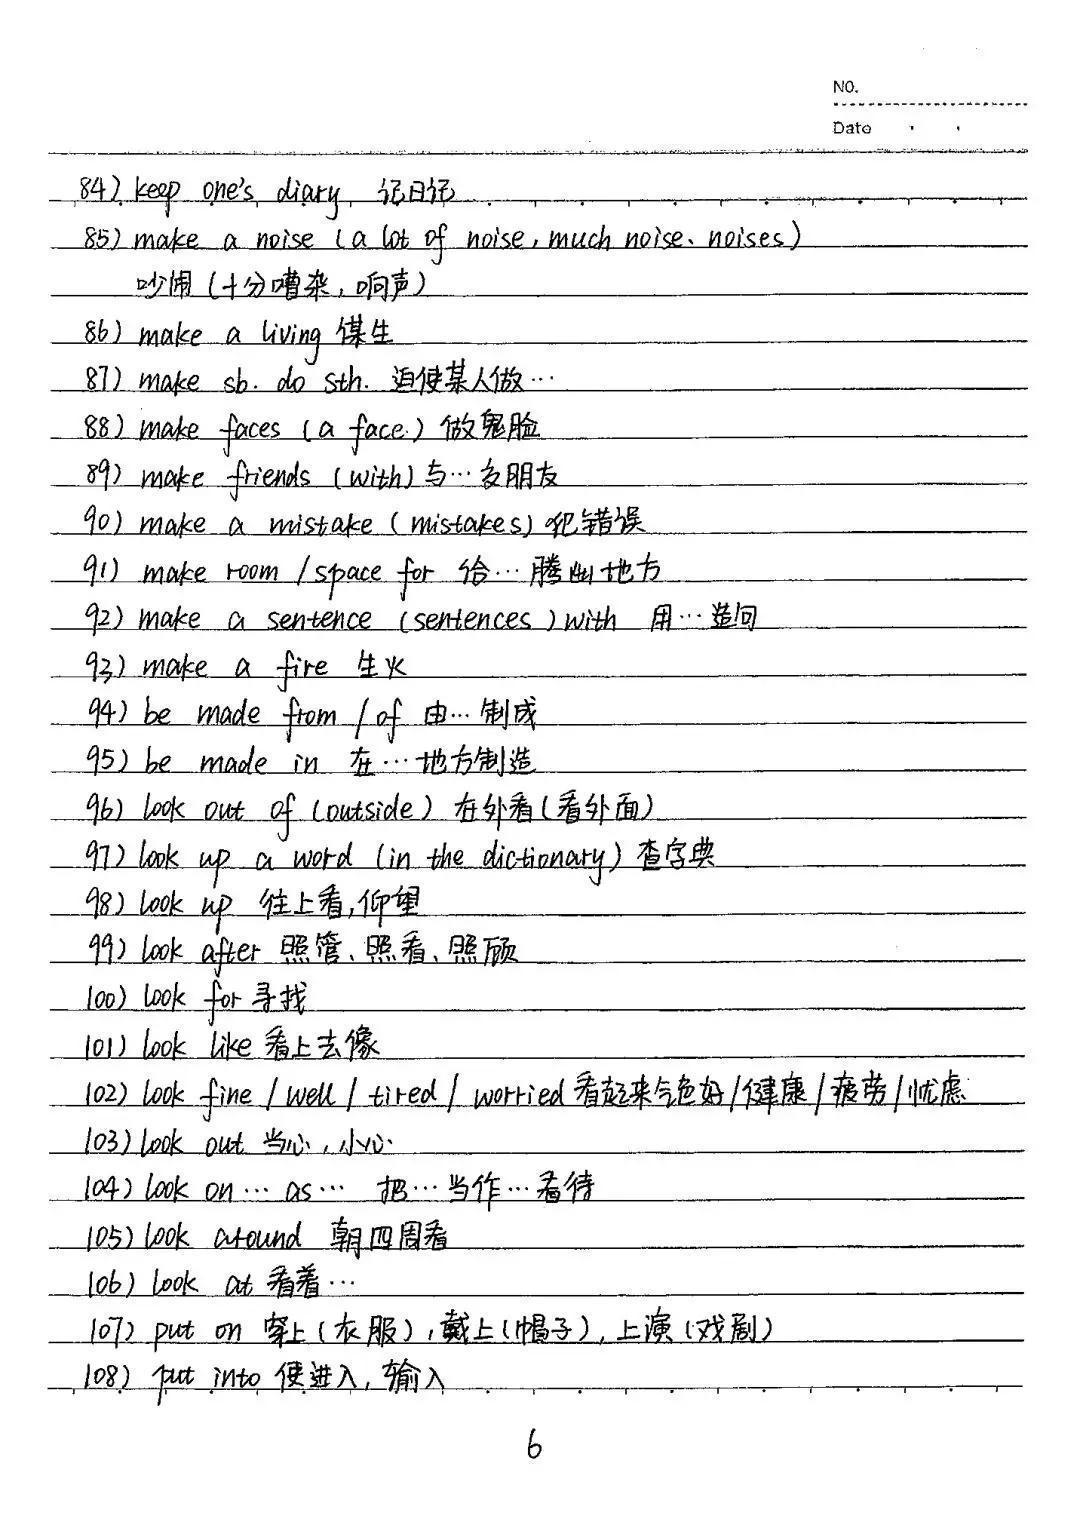 NO.
Date
84) keep one's diary 记日记
85) make a noise (a lot of noise, much noise、noises)
吵闹 (十分嘈杂, 响声)
86) make a living 谋生
87) make sb. do sth. 迫使某人做…
88) make faces (a face) 做鬼脸
89) make friends (with) 与…交朋友
90) make a mistake (mistakes) 犯错误
91) make room / space for 给…腾出地方
92) make a sentence (sentences) with 用…造句
93) make a fire 生火
94) be made from / of 由…制成
95) be made in 在…地方制造
96) look out of (outside) 在外看(看外面)
97) look up a word (in the dictionary) 查字典
98) look up 往上看,仰望
99) look after 照管、照看、照顾
100) look for 寻找
101) look like 看上去像
102) look fine / well / tired / worried 看起来气色好/健康/疲劳/忧虑
103) look out 当心, 小心
104) look on… as… 把…当作…看待
105) look around 朝四周看
106) look at 看着…
107) put on 穿上(衣服), 戴上(帽子), 上演(戏剧)
108) put into 使进入, 输入
6